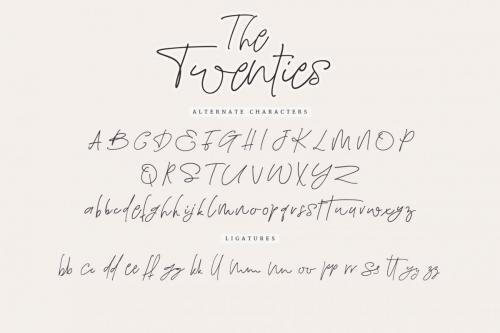 The
Twenties
ALTERNATE CHARACTERS
A B C D E F G H I J K L M N O P
Q R S T U V W X Y Z
a b b c d e f g h h i j k l m n o o p q r s s t t u u r u w x y z
LIGATURES
bb cc dd ee ff gg kk ll mm nn oo pp rr ss tt yy zz